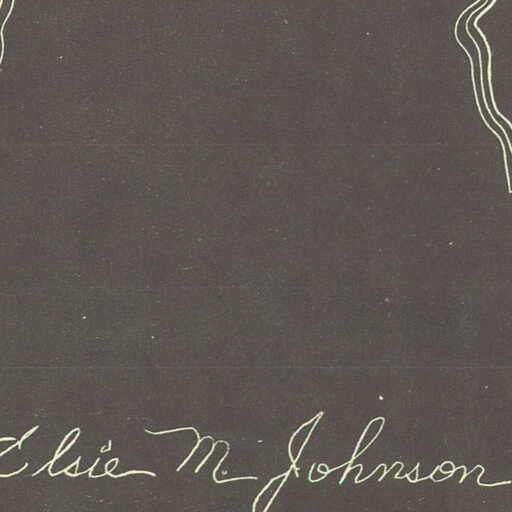 Elsie M. Johnson